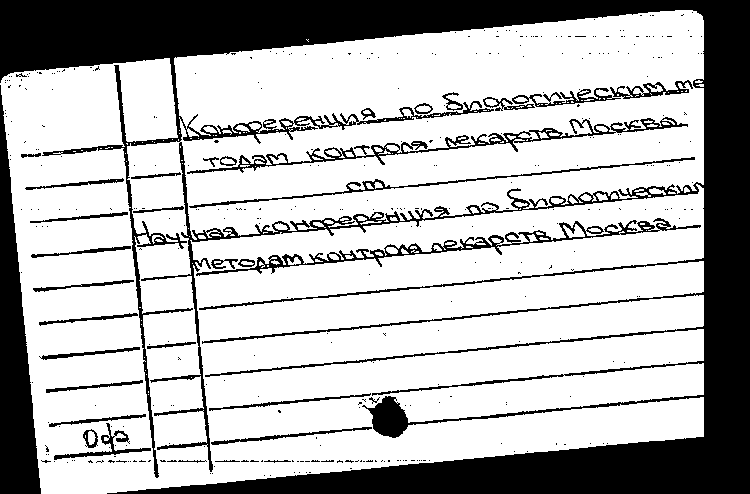 Конференция по биологическим ме
тодам контроля лекарств. Москва.
ст.
Научная конференция по биологическим
методам контроля лекарств. Москва.
Офэ